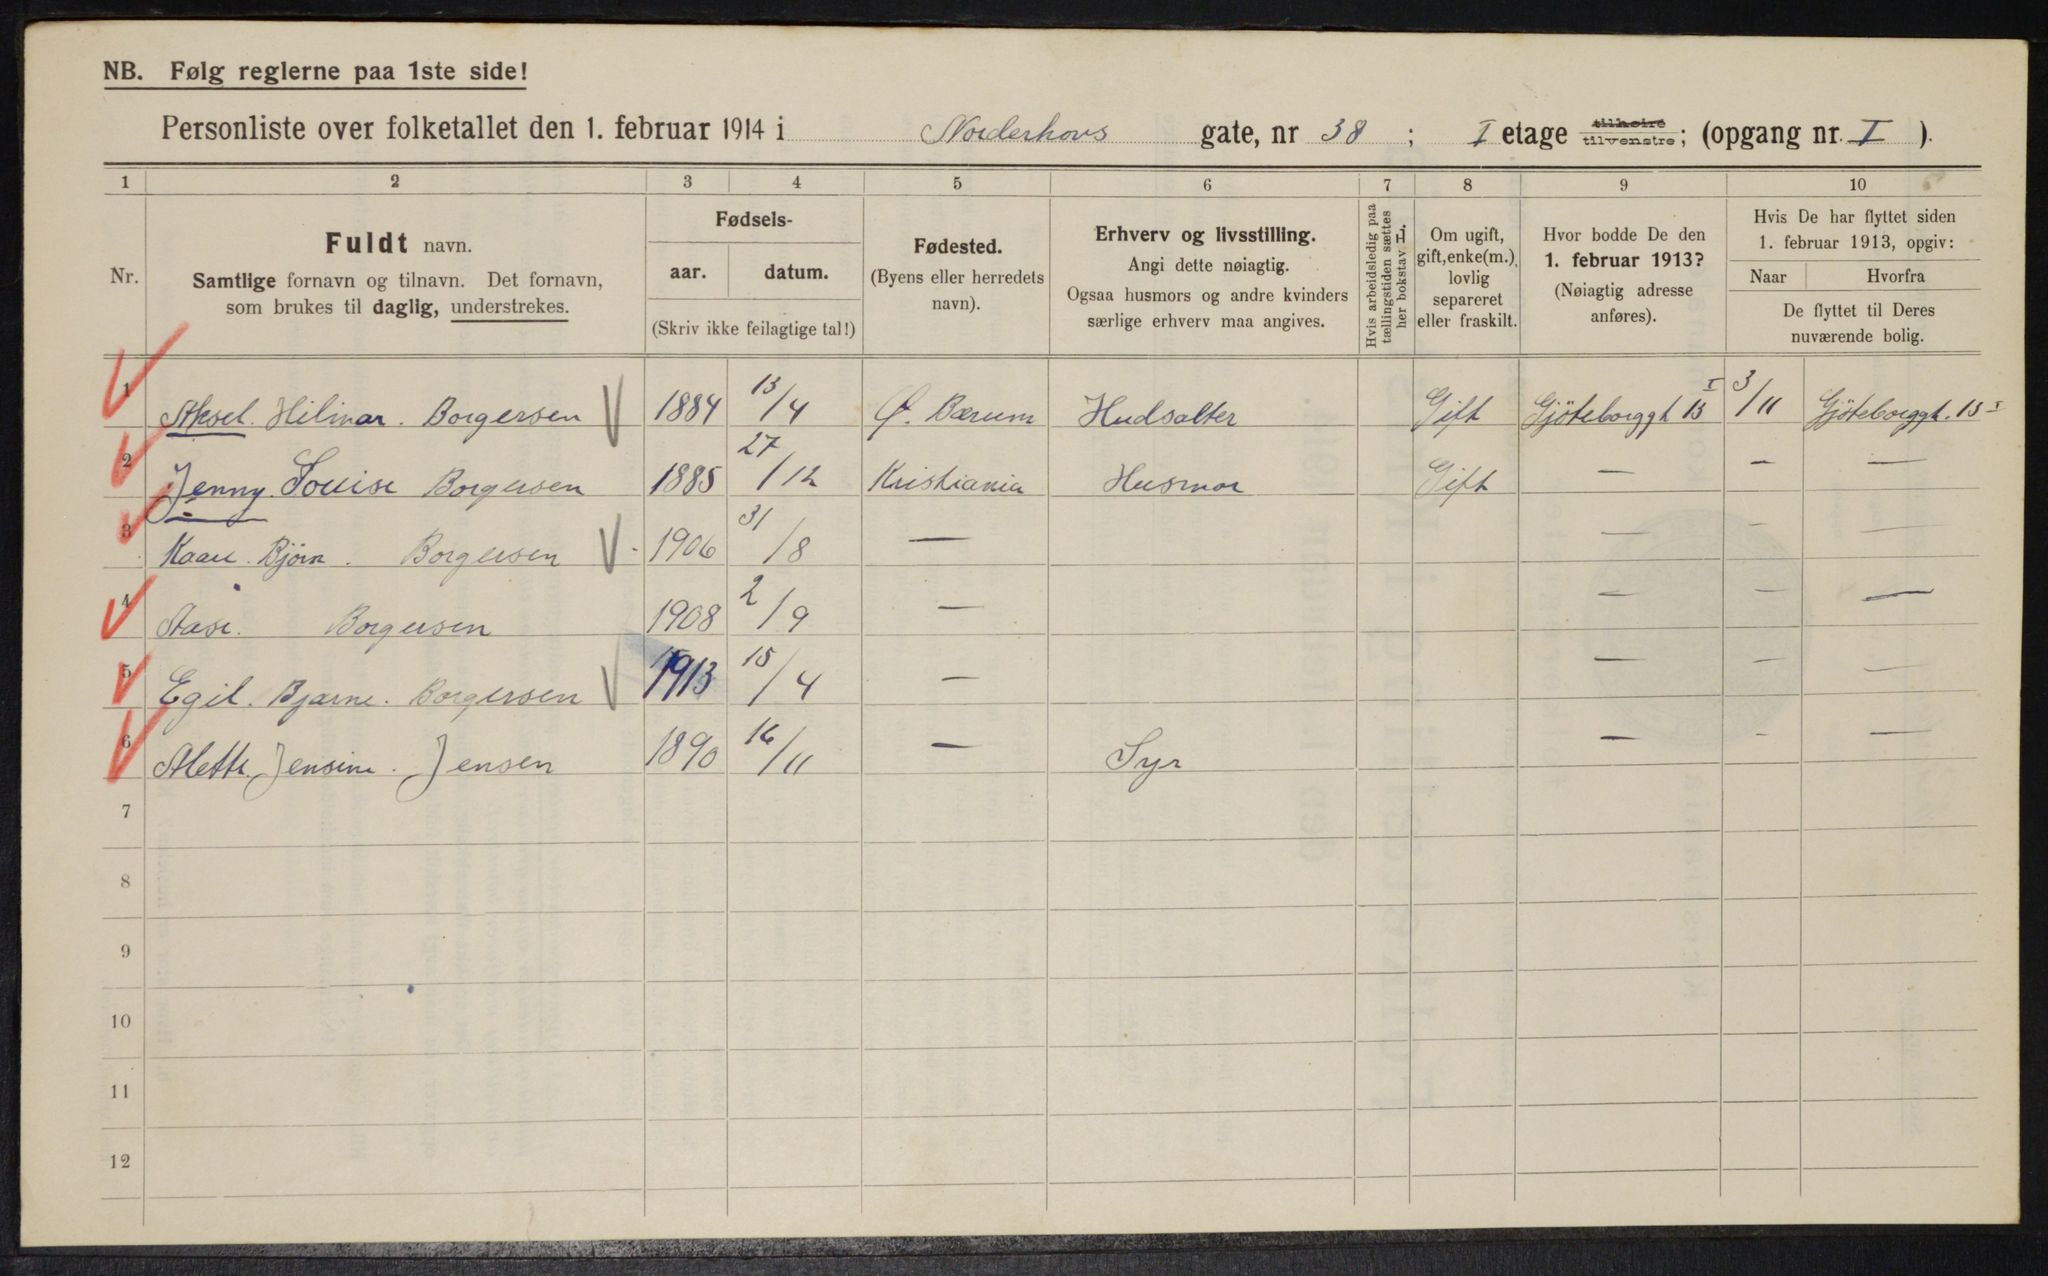 NB. Følg reglerne paa 1ste side!
Personliste over folketallet den 1. februar 1914 i Norderhovs gate, nr 38 ; I etage tilhøire tilvenstre; (opgang nr. I ).
1 2 3 4 5 6 7 8 9 10
Nr.
Fuldt navn.
Samtlige fornavn og tilnavn. Det fornavn,
som brukes til daglig, understrekes.
Fødsels-
aar. datum.
(Skriv ikke feilagtige tal!)
Fødested.
(Byens eller herredets
navn).
Erhverv og livsstilling.
Angi dette nøiagtig.
Ogsaa husmors og andre kvinders
særlige erhverv maa angives.
Hvis arbeidsledig paa
tællingstiden sættes
her bokstav L
Om ugift,
gift, enke(m.),
lovlig
separeret
eller fraskilt.
Hvor bodde De den
1. februar 1913?
(Nøiagtig adresse
anføres).
Hvis De har flyttet siden
1. februar 1913, opgiv:
Naar Hvorfra
De flyttet til Deres
nuværende bolig.
1 Aksel. Hilmar. Borgersen 1884 13/4 Ø. Bærum Hudsalter Gift Gjöteborggt 13 I 3/11 Gjöteborggt. 13 I
2 Jenny Louise Borgersen 1885 27/12 Kristiania Husmor Gift — — —
3 Kaare Bjørn. Borgersen 1906 31/8 — — — —
4 Aase. Borgersen 1908 2/9 — — — —
5 Egil. Bjarne. Borgersen 1913 15/4 — — — —
6 Alette. Jensine. Jensen 1890 16/11 — Syr — — —
7
8
9
10
11
12